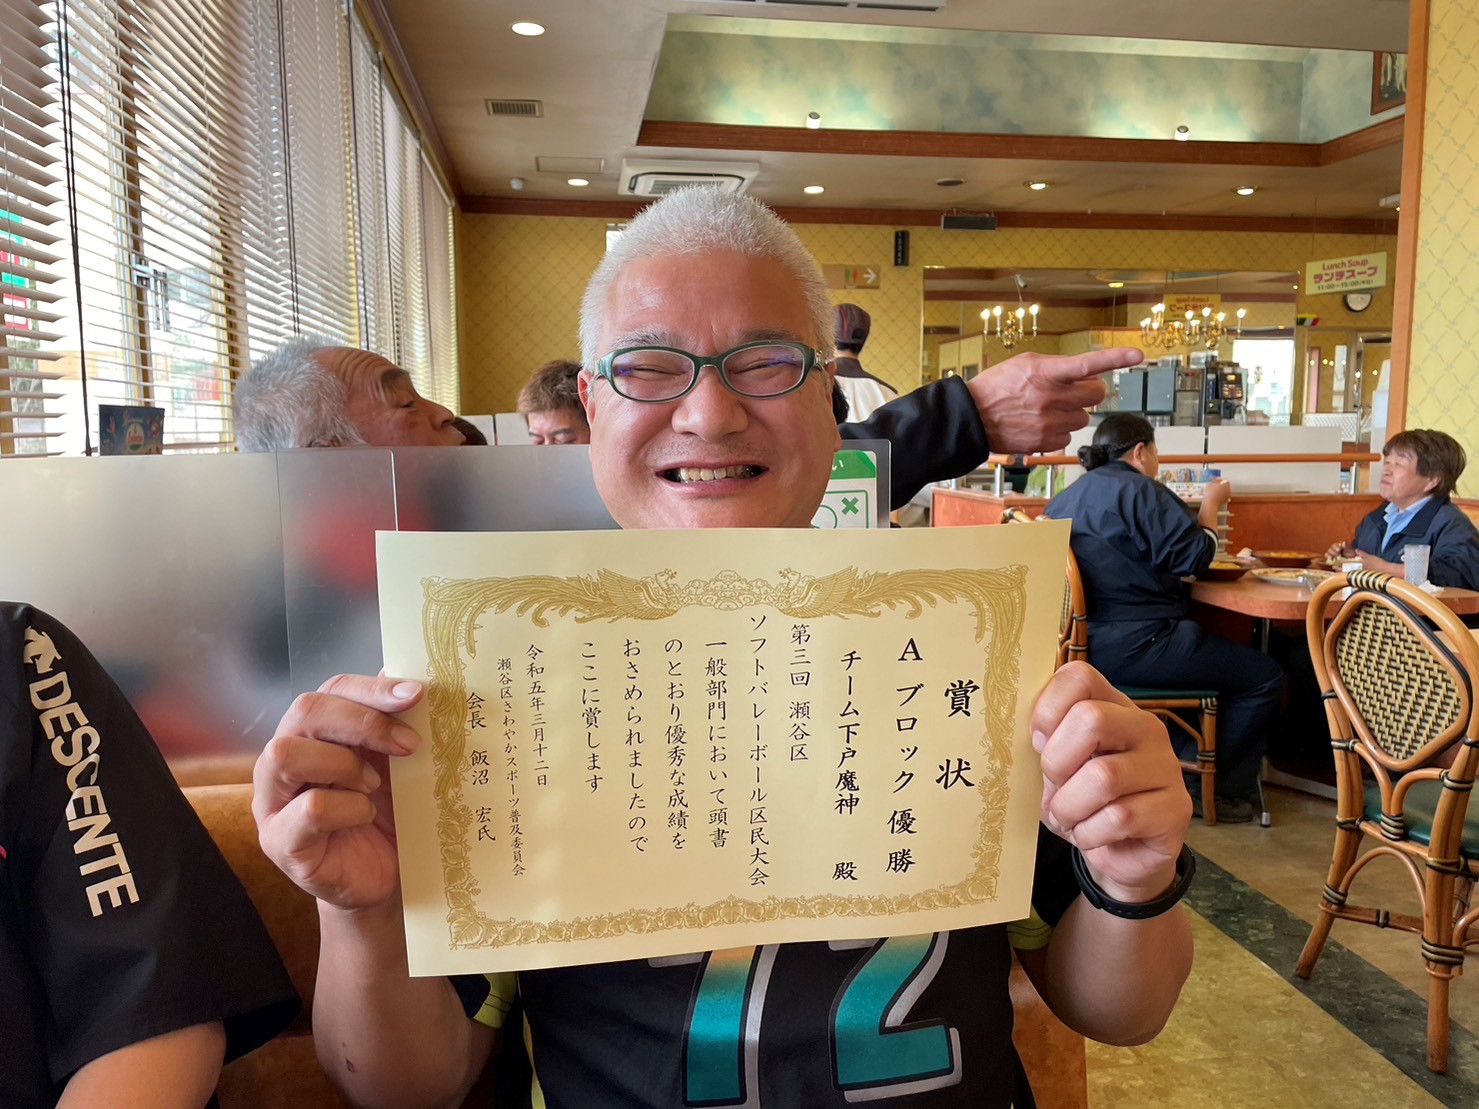 賞状
Aブロック 優勝
チーム下戸魔神 殿
第三回 瀬谷区
ソフトバレーボール区民大会
一般部門において頭書
のとおり優秀な成績を
おさめられましたので
ここに賞します
令和五年三月十二日
瀬谷区さわやかスポーツ普及委員会
会長 飯沼 宏氏
DESCENTE
72
Lunch Soup
ランチスープ